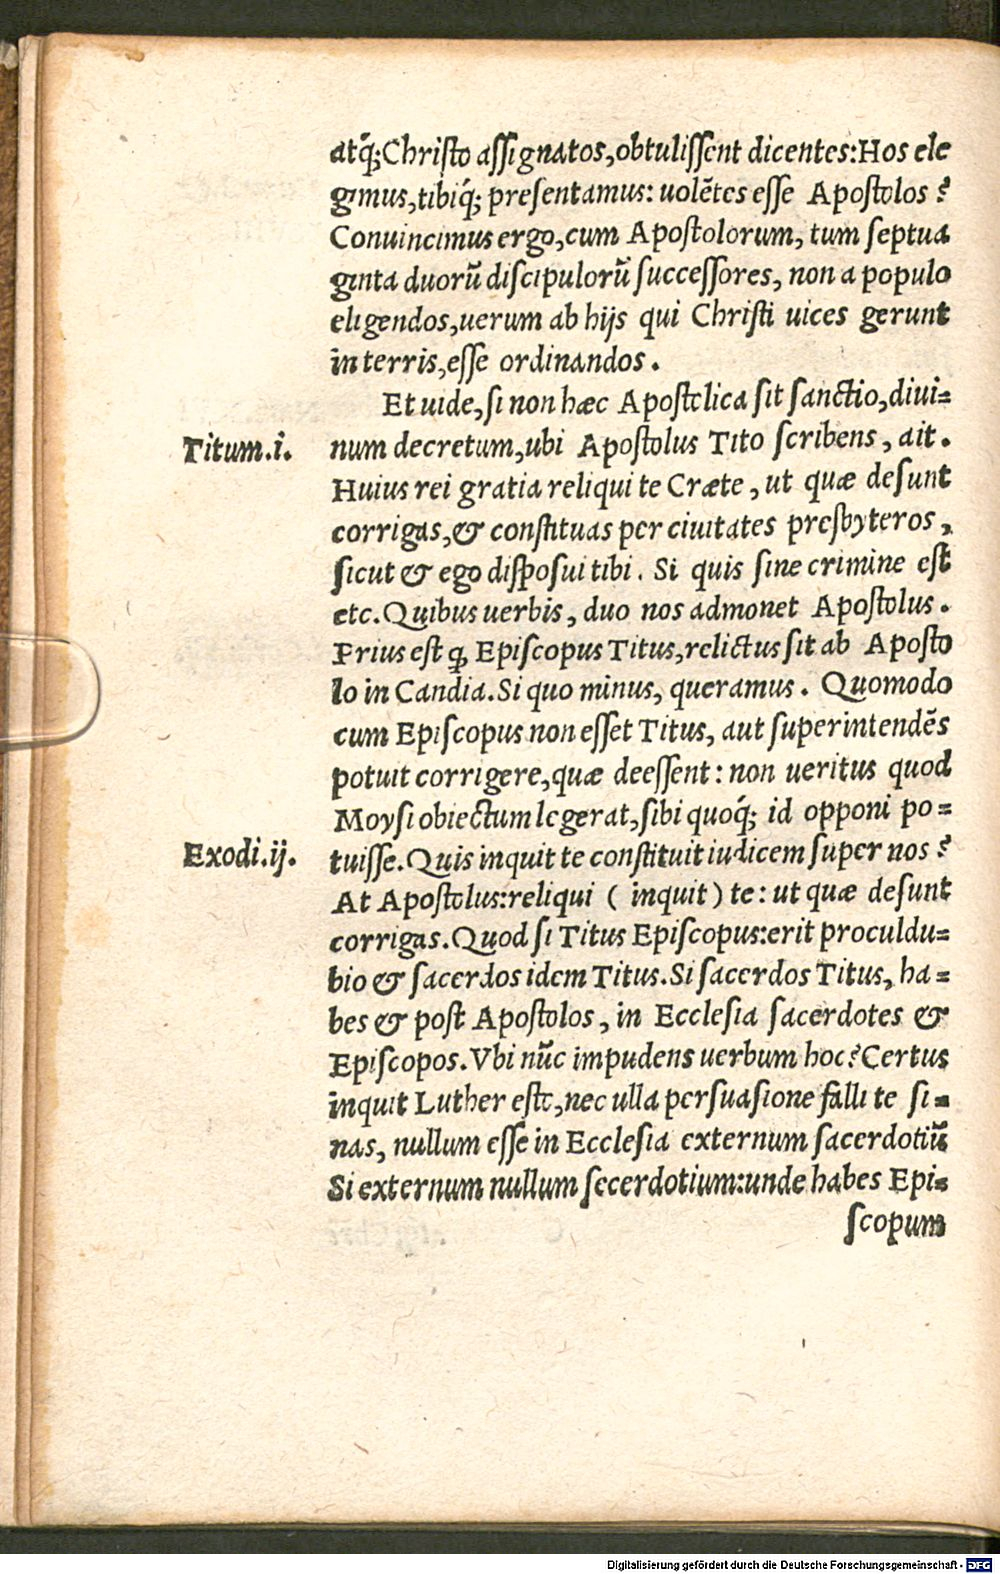 atq́;Christo aſſignatos,obtuliſſent dicentes:Hos ele
gimus,tibiq́; preſentamus: uolẽtes eſſe Apoſtolos?
Conuincimus ergo,cum Apoſtolorum, tum ſeptua
ginta duorũ diſcipulorũ ſucceſſores, non a populo
eligendos,uerum ab hijs qui Chriſti uices gerunt
in terris,eſſe ordinandos.
Et uide,ſi non hæc Apoſtolica ſit ſanctio,diui=
Titum.i.
num decretum,ubi Apoſtolus Tito ſcribens, ait.
Huius rei gratia reliqui te Cræte, ut quæ deſunt
corrigas,& conſtituas per ciuitates presbyteros,
ſicut & ego diſpoſui tibi. Si quis ſine crimine eſt
etc. Quibus uerbis, duo nos admonet Apoſtolus.
Prius eſt ꝙ Epiſcopus Titus,relictus ſit ab Apoſto
lo in Candia.Si quo minus, queramus. Quomodo
cum Epiſcopus non eſſet Titus, aut ſuperintendẽs
potuit corrigere,quæ deeſſent: non ueritus quod
Moyſi obiectum legerat,ſibi quoq́; id opponi po=
Exodi.ij.
tuiſſe.Quis inquit te conſtituit iudicem ſuper nos?
At Apoſtolus:reliqui ( inquit ) te: ut quæ deſunt
corrigas.Quod ſi Titus Epiſcopus:erit proculdu=
bio & ſacerdos idem Titus.Si ſacerdos Titus, ha=
bes & poſt Apoſtolos, in Eccleſia ſacerdotes &
Epiſcopos.Vbi nũc impudens uerbum hoc?Certus
inquit Luther eſto,nec ulla perſuaſione falli te ſi=
nas, nullum eſſe in Eccleſia externum ſacerdotiũ
Si externum nullum ſecerdotium:unde habes Epi=
ſcopum
Digitalisierung gefördert durch die Deutsche Forschungsgemeinschaft - DFG